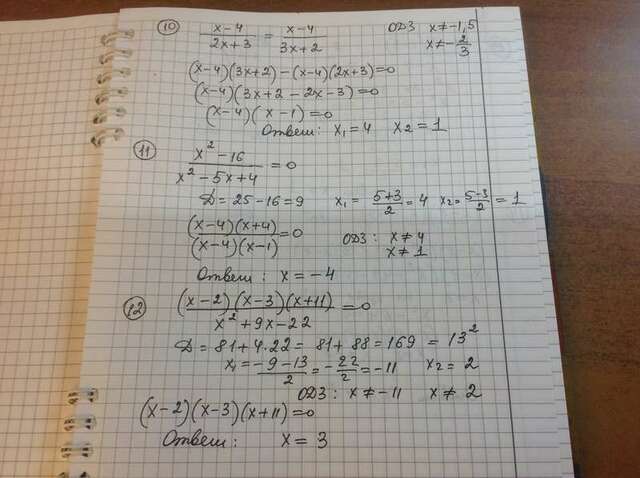 10 (x-4)/(2x+3) = (x-4)/(3x+2) ОДЗ x≠-1,5
x≠-2/3
(x-4)(3x+2)-(x-4)(2x+3)=0
(x-4)(3x+2-2x-3)=0
(x-4)(x-1)=0
Ответ: x₁=4 x₂=1
11 (x²-16)/(x²-5x+4) = 0
D=25-16=9 x₁= (5+3)/2 = 4 x₂= (5-3)/2 = 1
((x-4)(x+4))/((x-4)(x-1)) = 0 ОДЗ: x≠4
x≠1
Ответ: x=-4
12 ((x-2)(x-3)(x+11))/(x²+9x-22) = 0
D=81+4.22=81+88=169=13²
x₁= (-9-13)/2 = -22/2 = -11 x₂=2
ОДЗ: x≠-11 x≠2
(x-2)(x-3)(x+11)=0
Ответ: x=3